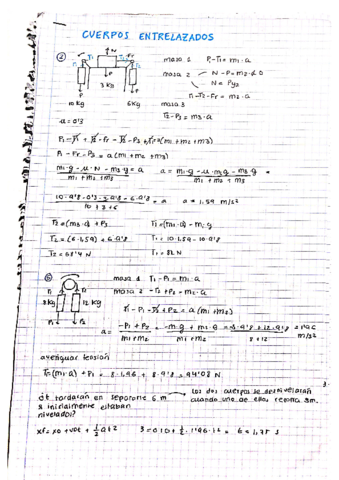 CUERPOS ENTRELAZADOS
① masa 1 P₁-T₁ = m₁·a
masa 2 N-P = m₂·0
N = Py₂
T₁-T₂-Fr = m₂·a
masa 3
T₂-P₃ = m₃·a
10 Kg 3 Kg 6 Kg
μ = 0'3
P₁-T₁+T₁-Fr-T₂-P₃+T₂ = a(m₁+m₂+m₃)
P₁-Fr-P₃ = a(m₁+m₂+m₃)
m₁·g-μ·N-m₃·g = a a = m₁·g-μ·m₂g-m₃·g =
m₁+m₂+m₃ m₁+m₂+m₃
10·9'8-0'3·3·9'8-6·9'8 = a a = 1,59 m/s²
10+3+6
T₂ = (m₃·a)+P₃ T₁ = (m₁·a)-m₁·g
T₂ = (6·1,59)+6·9'8 T₁ = 10·1,59-10·9'8
T₂ = 68'4 N T₁ = 82 N
② masa 1 T₁-P₁ = m₁·a
masa 2 -T₂+P₂ = m₂·a
8 Kg 12 Kg
T₁-P₁-T₂+P₂ = a(m₁+m₂)
a = -P₁+P₂ = -m₁g+m₂·g = -8·9'8+12·9'8 = 1'96 m/s²
m₁+m₂ m₁+m₂ 8+12
averiguar tensión
T = (m₁·a)+P₁ = 8·1,96+8·9'8 = 94'08 N
¿t tardarán en separarse 6 m si inicialmente estaban nivelados?
Los dos cuerpos se desnivelarán cuando uno de ellos recorra 3m.
xf = x₀+v₀t+½at² 3 = 0+0+½·1'96·t² = t = 1,75 s